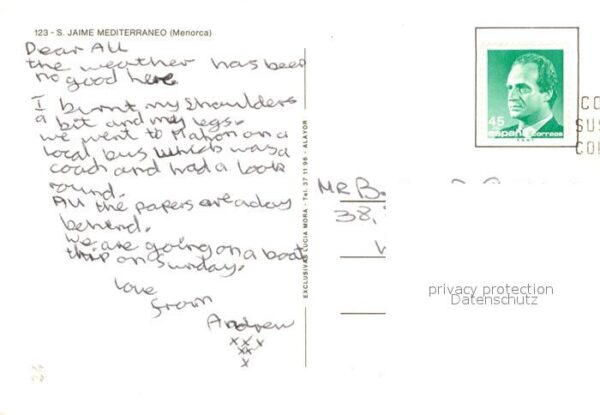 123 - S. JAIME MEDITERRANEO (Menorca)
Dear All
the weather has been
no good here
I burnt my shoulders
a bit and my legs.
we went to Mahon on a
local bus which was a
coach and had a look
round.
All the papers are a day
behind.
We are going on a boat
trip on Sunday.
love
from
Andrew
xxx
xx
x
EXCLUSIVAS LUCIA MORA - Tel. 37 11 96 - ALAYOR
45
españa correos
CO
SUS
COR
MR B.
38,
privacy protection
Datenschutz